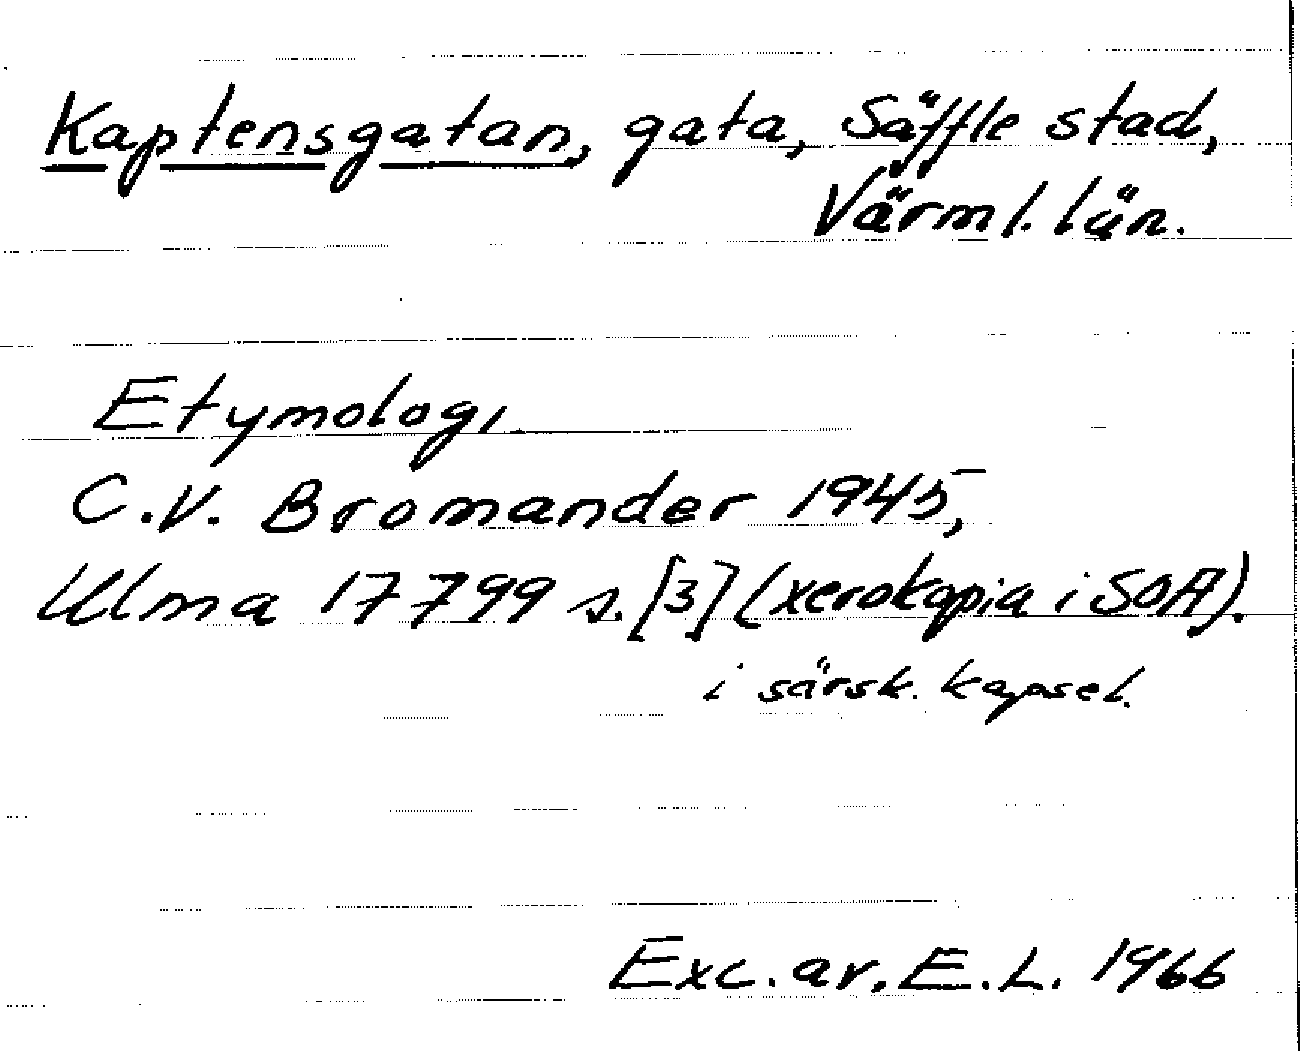 Kaptensgatan, gata, Säffle stad,
Värml. län.
Etymologi
C.V. Bromander 1945,
Ulma 17799 s. [3] (xerokopia i SOA).
i särsk. kapsel.
Exc. av. E.L. 1966